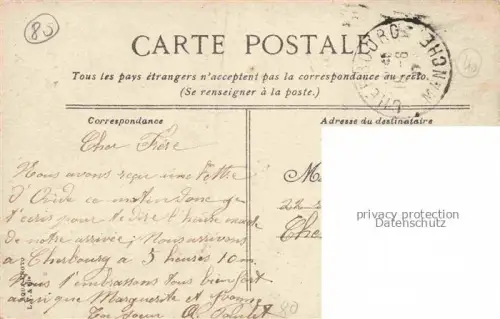 80
CARTE POSTALE
CHERBOURG
MANCHE
Tous les pays étrangers n'acceptent pas la correspondance au recto.
(Se renseigner à la poste.)
Correspondance
Adresse du destinataire
Cher Frère
Nous avons reçu une lettre
d'Ovide ce matin donc je
t'ecris pour te dire l'heure
de notre arrivée; Nous arrivons
à Cherbourg à 5 heures 10m.
Nous t'embrassons tous bien fort
ainsi que Marguerite et Yvonne
Ta soeur
M
22
Che
privacy protection
Datenschutz
80